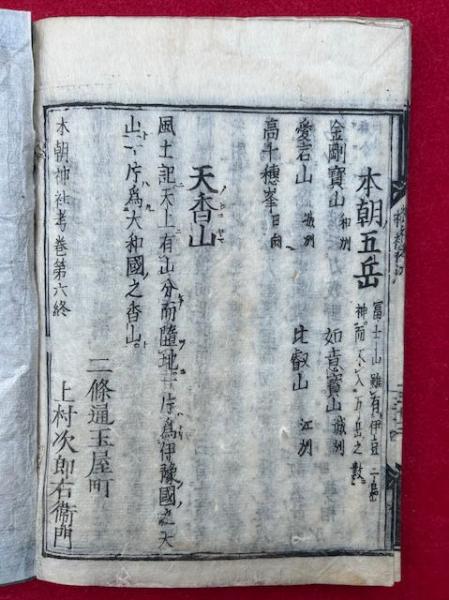 本朝五岳 冨士山雖有伊豆二所
神而不入五岳之數
金剛寶山 和州 如意寶山 城州
愛宕山 城州 比叡山 江州
高千穗峯 日向
天香山
風土記天上有山分而墮地一片爲伊豫國之天
山一片爲大和國之香山
二條通玉屋町
上村次郎右衞門
本朝神社考卷第六終